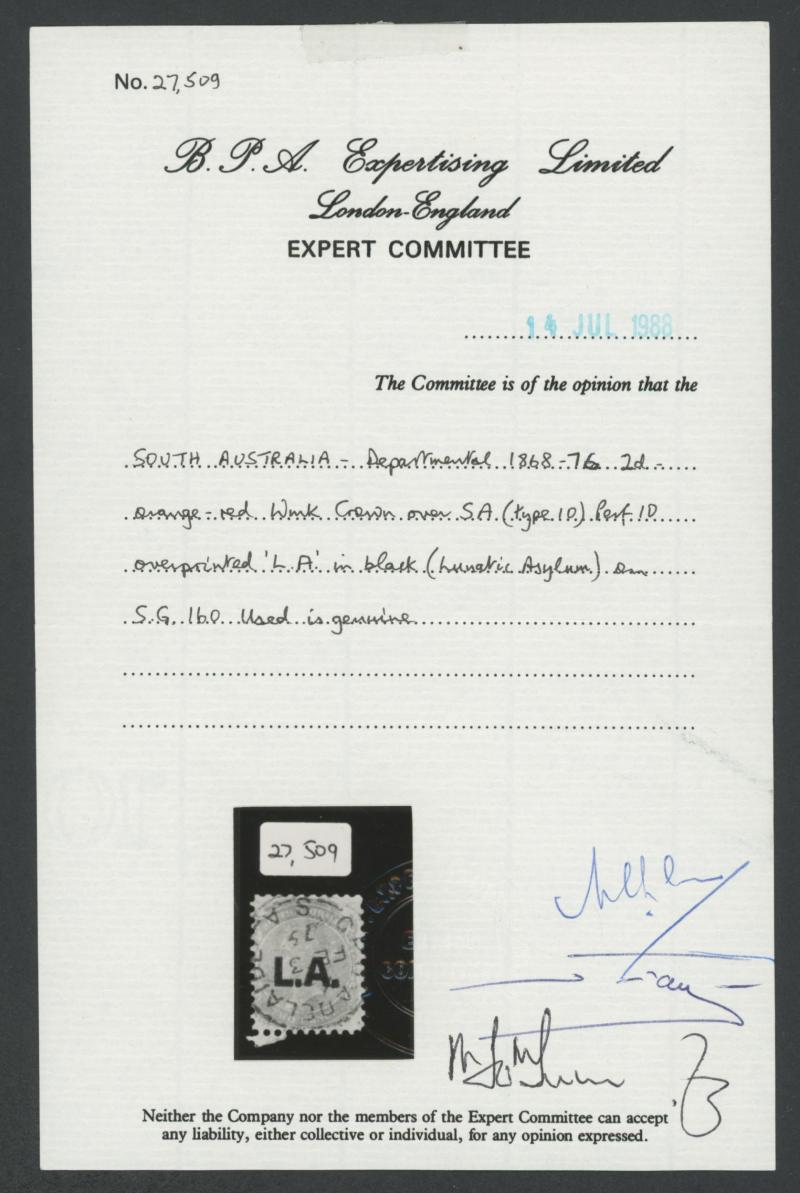 No. 27,509
B. P. A. Expertising Limited
London-England
EXPERT COMMITTEE
14 JUL 1988
The Committee is of the opinion that the
SOUTH AUSTRALIA - Departmental 1868-76 2d -
orange-red Wmk Crown over S.A. (type 10) Perf. 10
overprinted 'L.A' in black (Lunatic Asylum) on
S.G. 160 Used is genuine
27,509
L.A.
ADELAIDE
Neither the Company nor the members of the Expert Committee can accept
any liability, either collective or individual, for any opinion expressed.